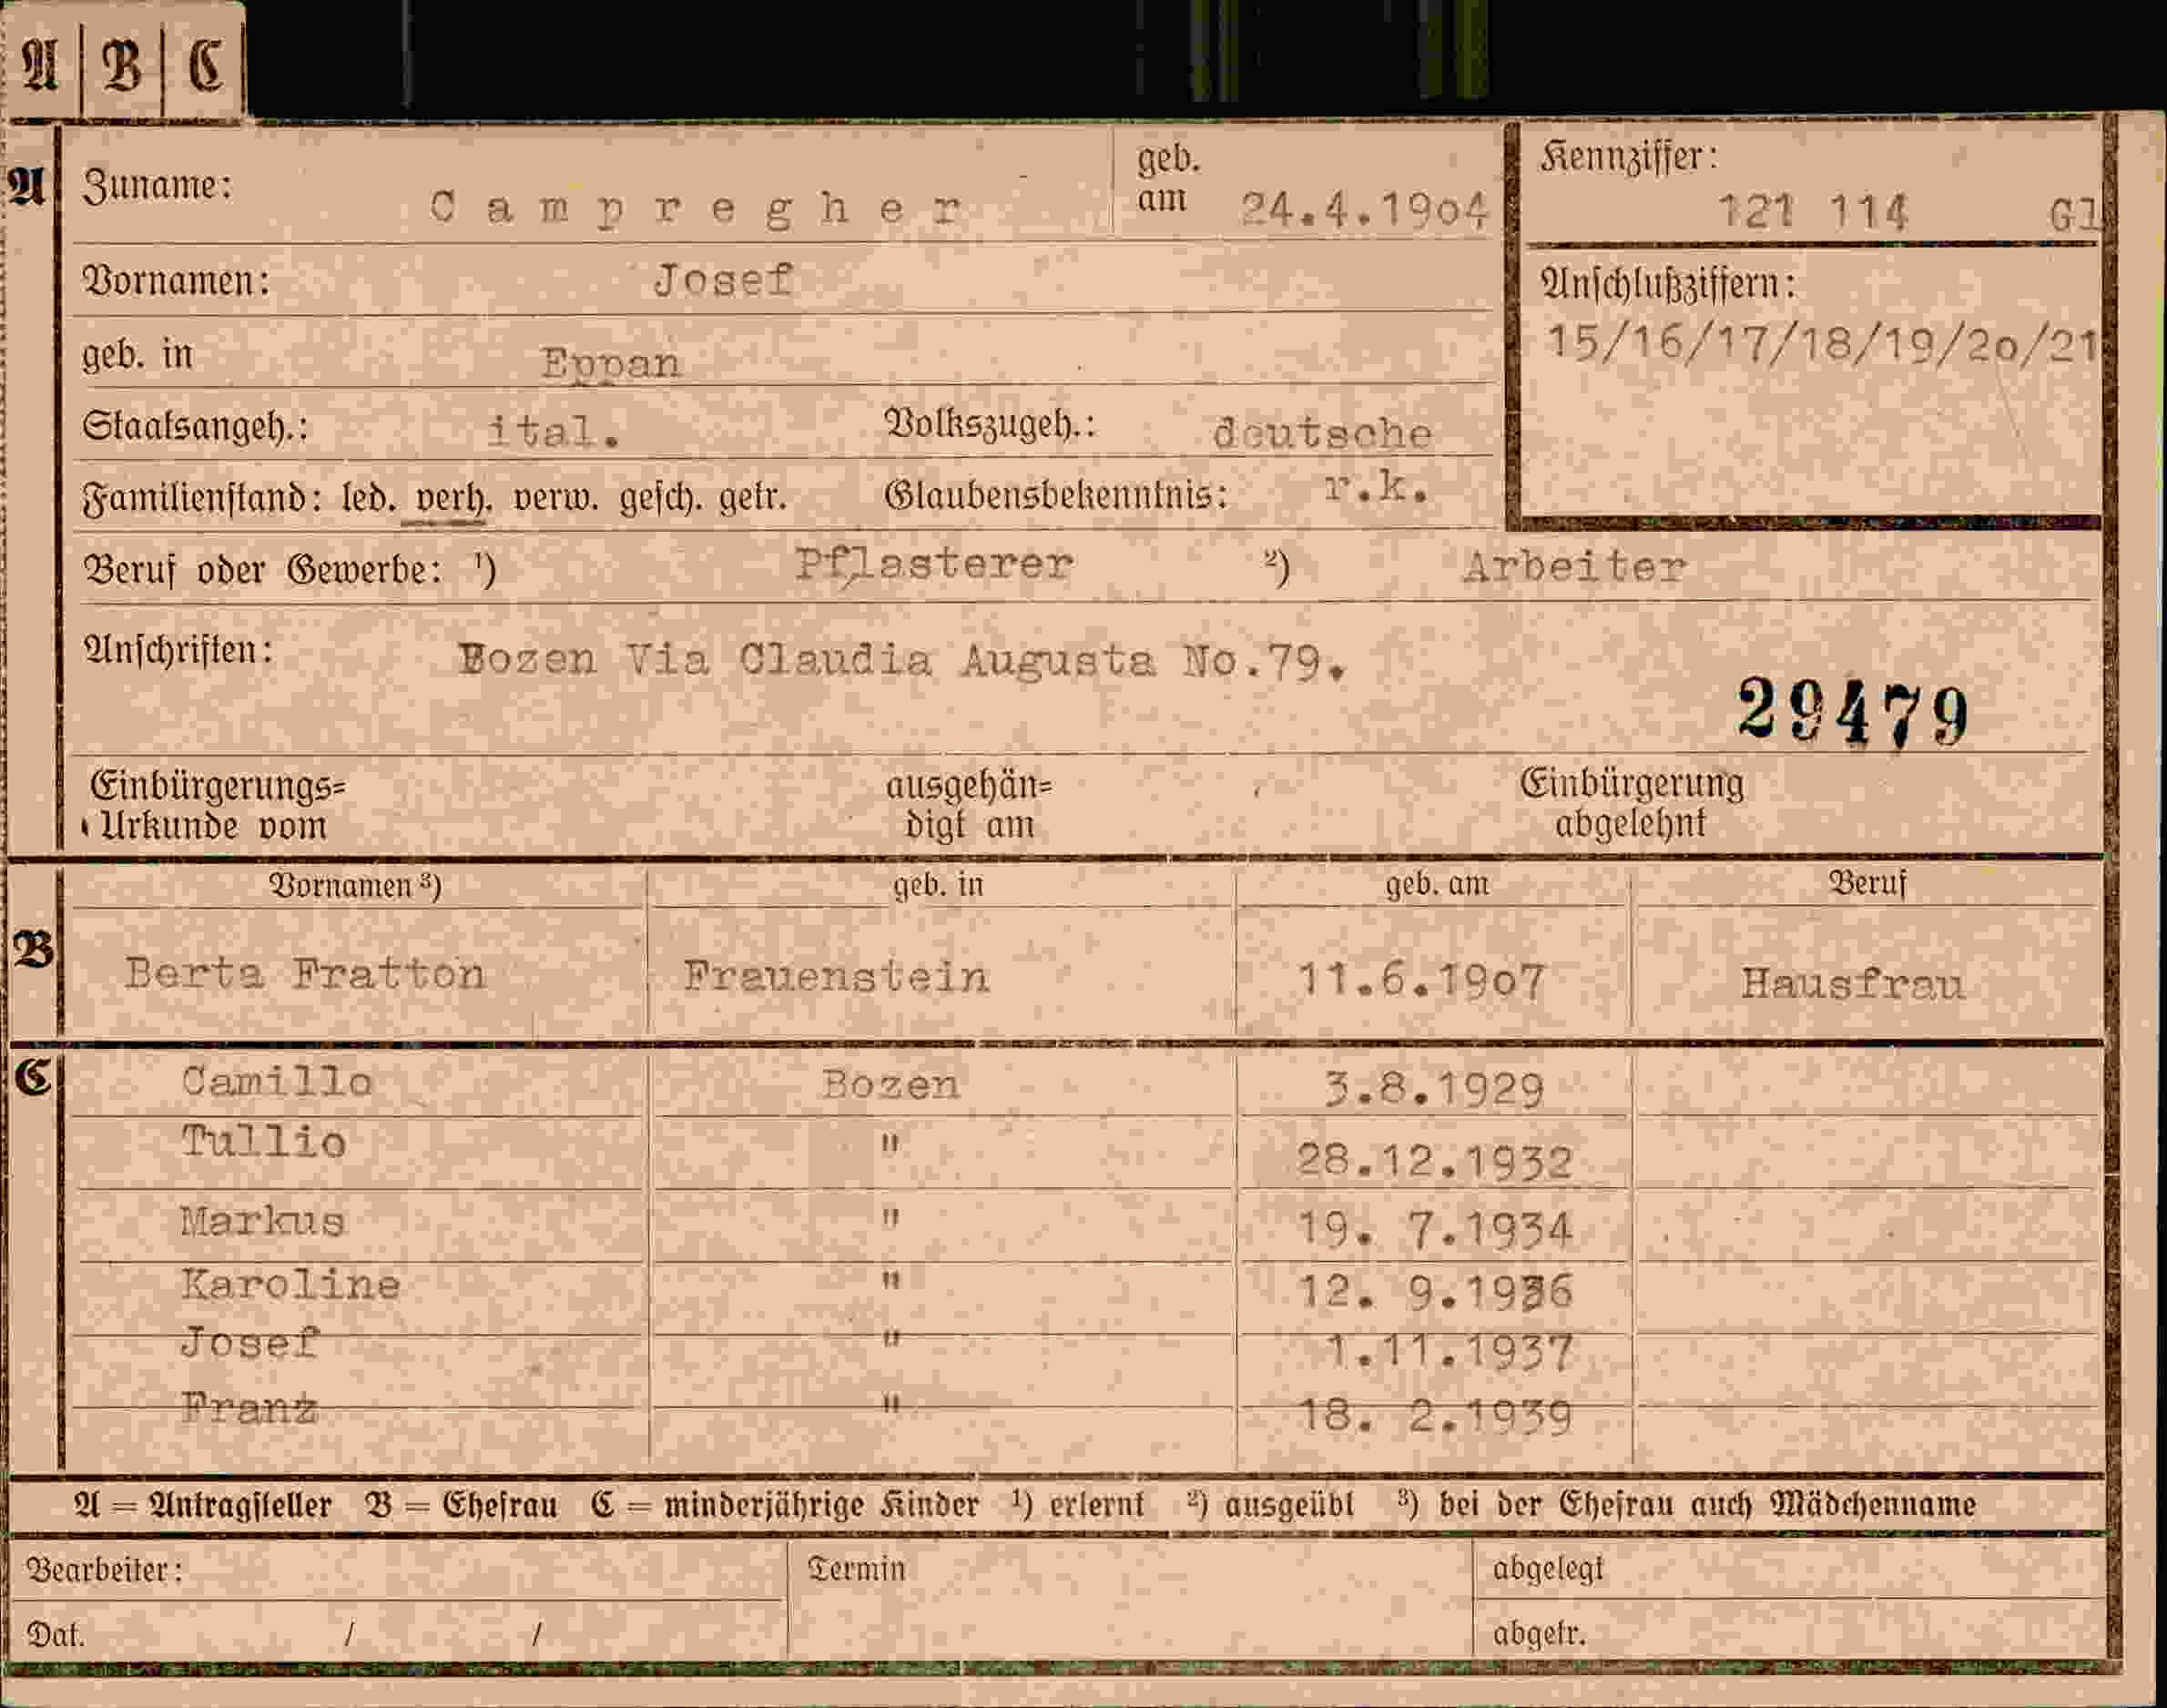 A | B | C
A Zuname: Campregher geb. am 24.4.19o4 Kennziffer: 121 114 Gl
Vornamen: Josef Anschlußziffern:
15/16/17/18/19/2o/21
geb. in Eppan
Staatsangeh.: ital. Volkszugeh.: deutsche
Familienstand: led. verh. verw. gesch. getr. Glaubensbekenntnis: r.k.
Beruf oder Gewerbe: ¹) Pflasterer ²) Arbeiter
Anschriften: Bozen Via Claudia Augusta No.79.
29479
Einbürgerungs= ausgehän= Einbürgerung
Urkunde vom digt am abgelehnt
Vornamen ³) geb. in geb. am Beruf
B Berta Fratton Frauenstein 11.6.19o7 Hausfrau
C Camillo Bozen 3.8.1929
Tullio " 28.12.1932
Markus " 19. 7.1934
Karoline " 12. 9.1936
Josef " 1.11.1937
Franz " 18. 2.1939
A = Antragsteller B = Ehefrau C = minderjährige Kinder ¹) erlernt ²) ausgeübt ³) bei der Ehefrau auch Mädchenname
Bearbeiter: Termin abgelegt
Dat. / / abgetr.